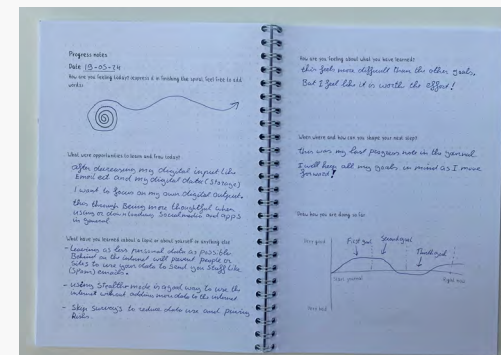 Progress notes
Date 19-05-24
How are you feeling today? Express it in finishing the spiral, feel free to add
words!
What were opportunities to learn and grow today?
After decreasing my digital input like
Email ect and my digital data (storage)
I want to focus on my own digital output.
this through Being more thoughtful when
using or downloading Socialmedia and apps
in general
What have you learned about a SDG or about yourself or anything else
- Leaving as less personal data as possible.
Behind on the internet will prevent people or
sites to use your data to send you stuff like
(spam) emails.
- using mode is a good way to use the
internet without adding more data to the internet
- Skip surveys to reduce data use and privacy
Risks.
How are you feeling about what you have learned?
this feels more difficult than the other goals.
But I feel like it is worth the effort!
When where and how can you shape your next step?
this was my last progress note in the journal
I will keep all my goals in mind as I move
forward!
Draw how you are doing so far
Very good
First goal
Second goal
Third goal
Start journal
Right now
Very bad